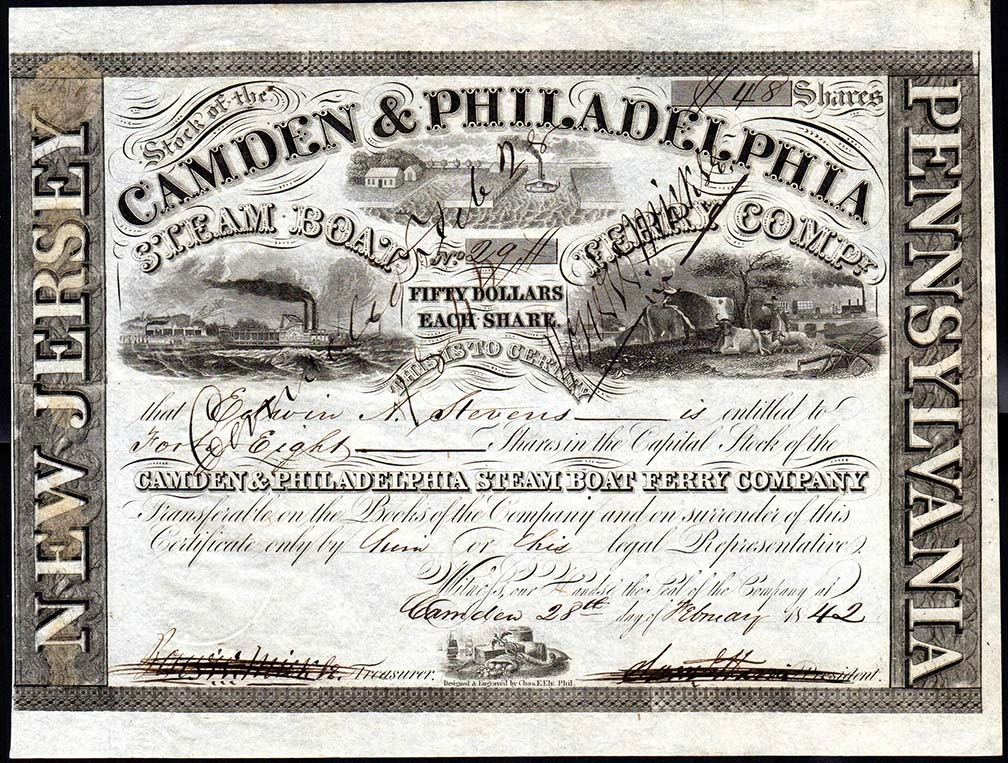 Stock of the
48 Shares
CAMDEN & PHILADELPHIA
STEAM BOAT FERRY COMPY
No 294
FIFTY DOLLARS
EACH SHARE.
THIS IS TO CERTIFY
that Edwin A. Stevens is entitled to
Forty Eight Shares in the Capital Stock of the
CAMDEN & PHILADELPHIA STEAM BOAT FERRY COMPANY
Transferable on the Books of the Company and on surrender of this
Certificate only by him or his legal Representatives.
Witness, our Hands & the Seal of the Company at
Camden 28th day of February 1842
Treasurer.
President.
Designed & Engraved by Chas. F. Ely. Phil.
NEW JERSEY
PENNSYLVANIA